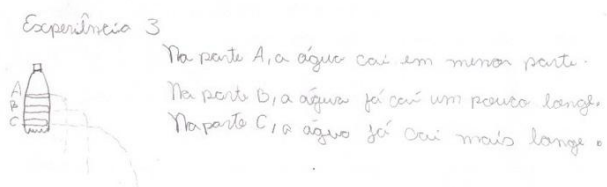 Experiência 3
Na parte A, a água cai em menor parte.
Na parte B, a água já cai um pouco longe.
Na parte C, a água já cai mais longe.
A
B
C